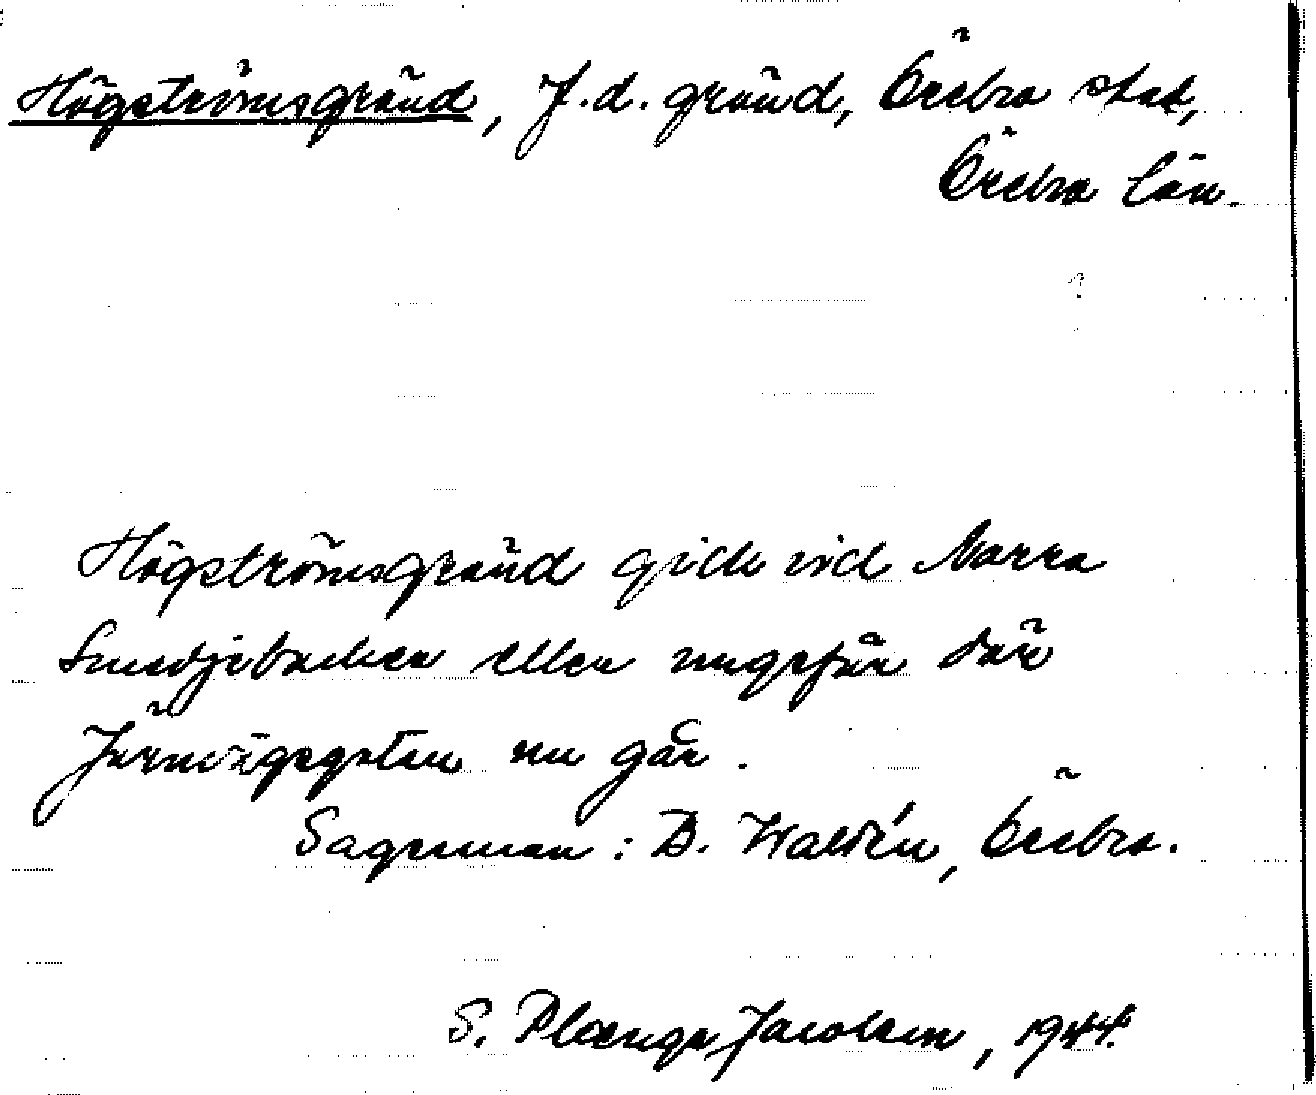 Högströmsgränd, f.d. gränd, Örebro stad,
Örebro län.
Högströmsgränd gick vid Norra
Smedjebacken eller ungefär där
Järnvägsgatan nu går.
Sagesman: D. Waldén, Örebro.
S. Plænge Jacobson, 1944.